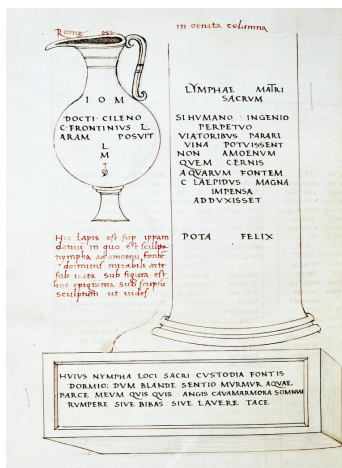 Rome est
I O M
DOCTI CILENO
C FRONTINIUS L
ARAM POSVIT
L
M
Hic lapis est sup ippam
in quo est sculpta
nympha ad amoenu fontē
dormiens mirabili arte
sub figura est
hoc epigrama sub scriptu
sculptum ut uides
in ornata columna
LYMPHAE MATRI
SACRVM
SI HVMANO INGENIO
PERPETVO
VIATORIBVS PARARI
VINA POTVISSENT
NON AMOENVM
QVEM CERNIS
AQVARVM FONTEM
C LAEPIDVS MAGNA
IMPENSA
ADDVXISSET
POTA FELIX
HVIVS NYMPHA LOCI SACRI CVSTODIA FONTIS
DORMIO: DVM BLANDE SENTIO MVRMVR AQVAE
PARCE MEVM QVIS QVIS ANGIS CAVAMARMORA SOMNVM
RVMPERE SIVE BIBAS SIVE LAVERE TACE